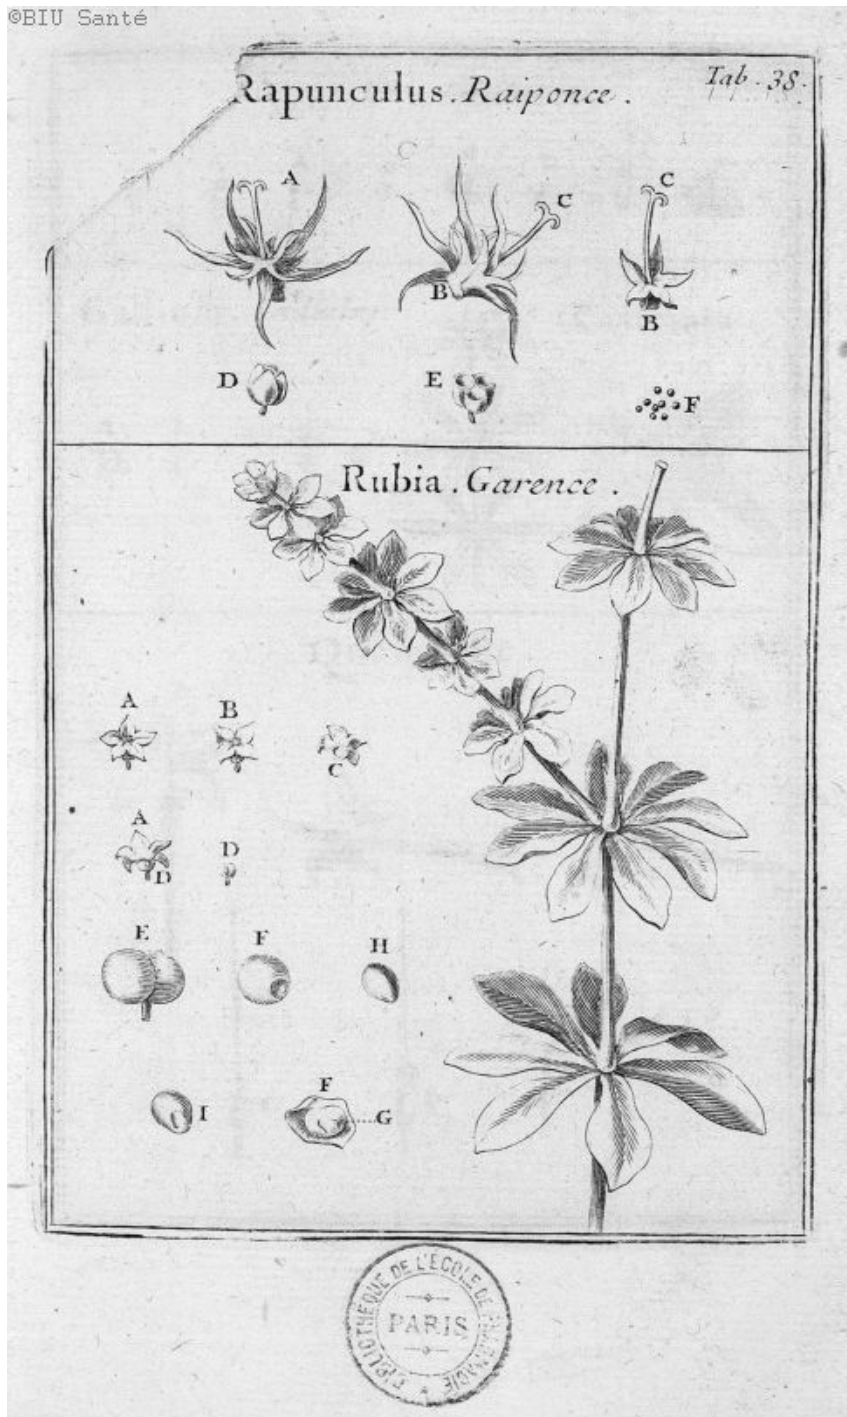 ©BIU Santé
Rapunculus. Raiponce.
Tab. 38.
A
C
C
B
B
D
E
F
Rubia. Garence.
A
B
C
A
D
D
E
F
H
I
F
G
BIBLIOTHÈQUE DE L'ÉCOLE DE PHARMACIE
PARIS